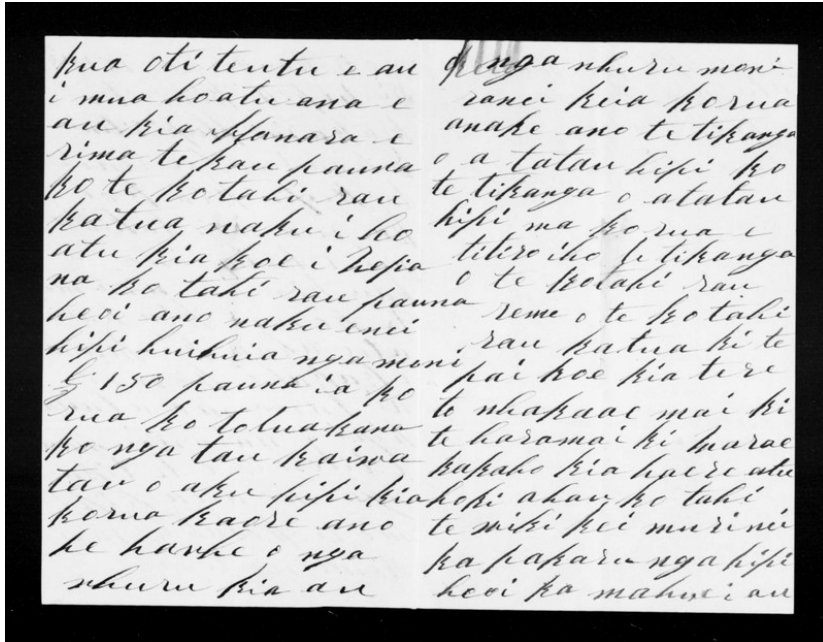 kua oti te utu e au
i mua hoatu ana e
au kia Manara e
rima tekau pauna
ko te kotahi rau
katua naku i ho
atu kia koe i Nepia
na ko tahi rau pauna
heoi ano naku enei
hipi huihuia nga moni
£ 150 pauna ia ko
rua ko to tuakana
ko nga tau kaiwa
tau o aku hipi kia
korua kaore ano
he hawhe o nga
whuru kia au
nga whuru moni
ranei keia korua
anake ano te tikanga
o a tatau hipi ko
te tikanga o atatau
hipi ma korua e
titiro iho te tikanga
o te kotahi rau
reme o te kotahi
rau katua ki te
pai koe kia tere
te whakaae mai ki
te haramai ki Marae
kakaho kia haere atu
hoki ahau ko tahi
te wiki kei muri nei
ka pakaru nga hipi
heoi ka mahue i au